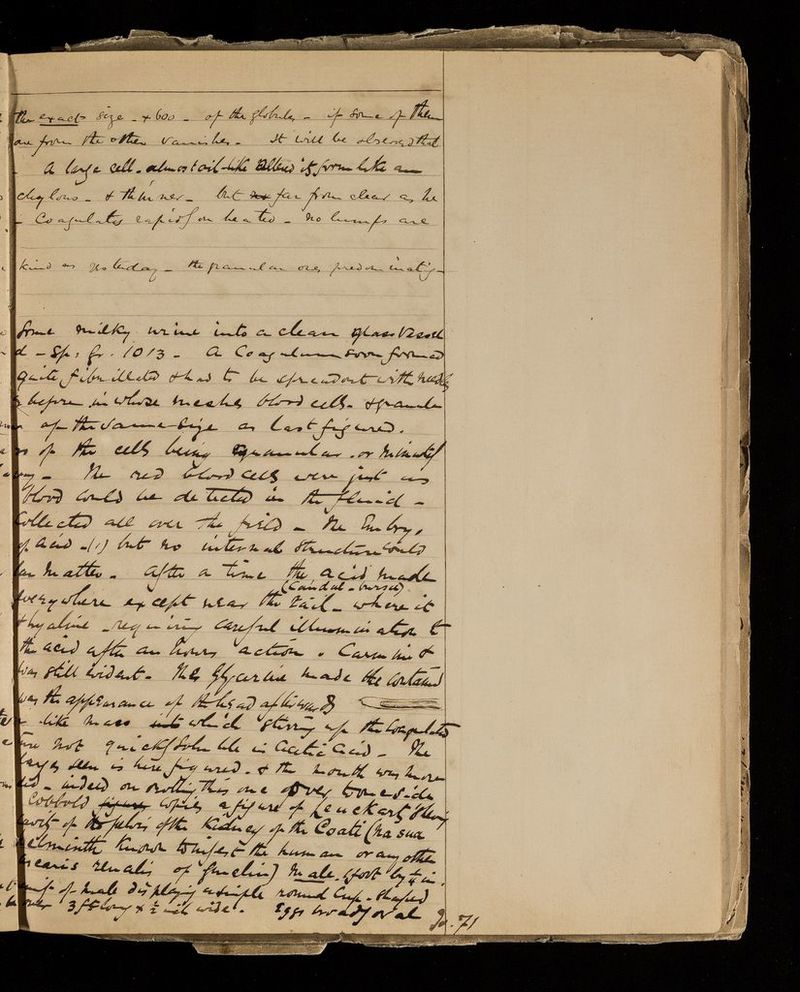 the exact size - x 600 - of the globules - if some of them
are from the other vanishes - It will be observed that
A large cell - almost oil-like altered its form like an
chylous - & thinner - but far from clear as he
- Coagulates rapidly on heated - no lumps are
kind as yesterday - the granular ones predominating -
Some milky urine into a clean glass vessel
d - Sp. gr. 1013 - A Coagulum soon formed
quite fibrillated & had to be spread out with needles
before in whose meshes blood cells - & granule
of the same size as last figured.
of the cells being granular - or minutely
The red blood cells were just as
blood could be detected in the fluid -
Collected all over the field - The Embryo
of acid - (1) but no internal structure could
lar matter - After a time the acid made
(Caudal-bursa)
everywhere except near the tail - where it
& hyaline - requiring careful illumination to
the acid after an hours action. Carmine &
was still evident. The Glycerine made the contained
was the appearance of the head afterwards
-like mass into which stirring up the coagulated
are not quickly soluble in Acetic Acid - The
larges seen is here figured - & the mouth was more
- indeed on rolling this one over to one side
Cobbold copies a figure of Leuckart's
of the pelvis of the Kidney of the Coati (Nasua
helminth known to infest the human or any other
Ascaris renalis of Gmelin) Male - 1 foot by ¼ in.
of male displaying a simple round Cup-shaped
3 ft long x ½ inch wide. Eggs broadly oval
71